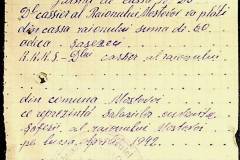 Dl casier al Raionului Mostovoi va plăti
din cassa raionului suma de 60.
adica. Șasezeci
R.K.K.S. casier al raionului
din comuna Mostovoi
ce reprezintă Salariul
Șoferii, al raionului Mostovoi
pe luna Aprilie 1942.